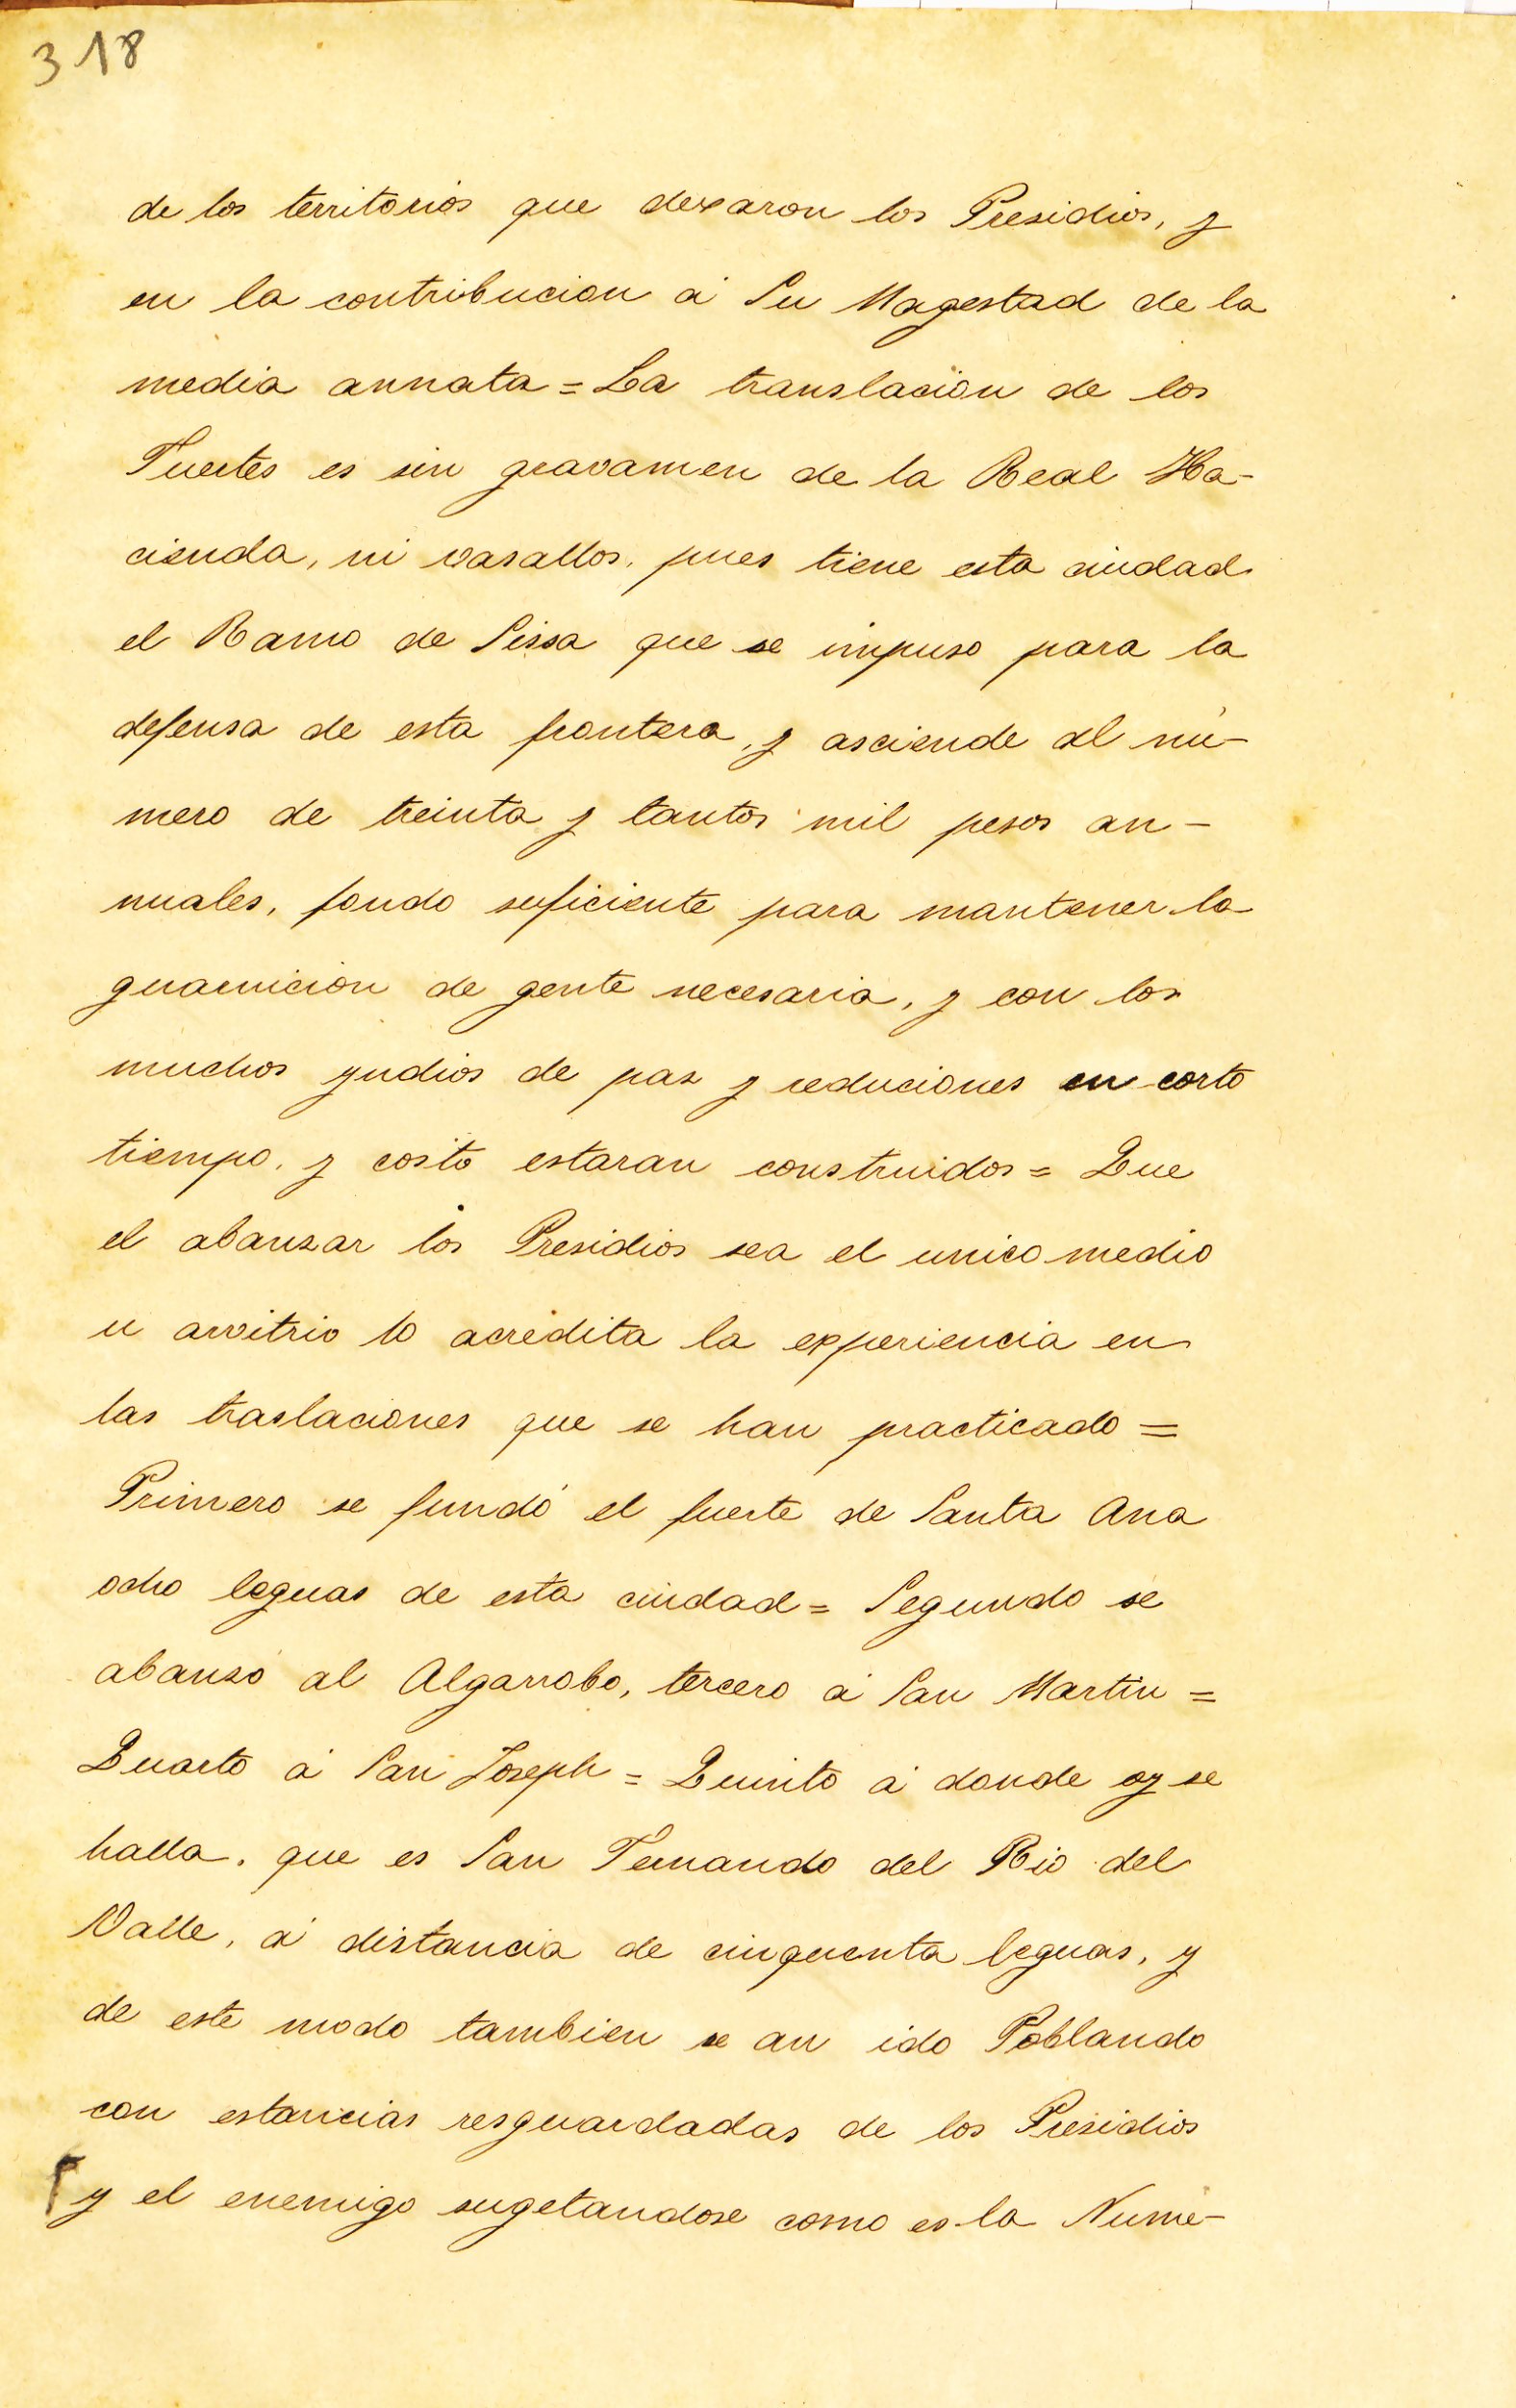 318
de los territorios que dexaron los Presidios, y
en la contribucion á Su Magestad de la
media annata = La translacion de los
Fuertes es sin gravamen de la Real Ha-
cienda, ni vasallos, pues tiene esta ciudad
el Ramo de Sissa que se impuso para la
defensa de esta frontera, y asciende al nú-
mero de treinta y tantos mil pesos an-
nuales, fondo suficiente para mantener la
guarnicion de gente necesaria, y con los
muchos yndios de paz y reduciones en corto
tiempo, y costo estaran construidos = Que
el abanzar los Presidios sea el unico medio
u arvitrio lo acredita la experiencia en
las traslaciones que se han practicado =
Primero se fundó el fuerte de Santa Ana
ocho leguas de esta ciudad = Segundo se
abanzó al Algarrobo, tercero á San Martin =
Quarto á San Joseph = Quinto á donde oy se
halla, que es San Fernando del Rio del
Valle, á distancia de cinquenta leguas, y
de este modo tambien se an ido Poblando
con estancias resguardadas de los Presidios
y el enemigo sugetandose como es la Nume-